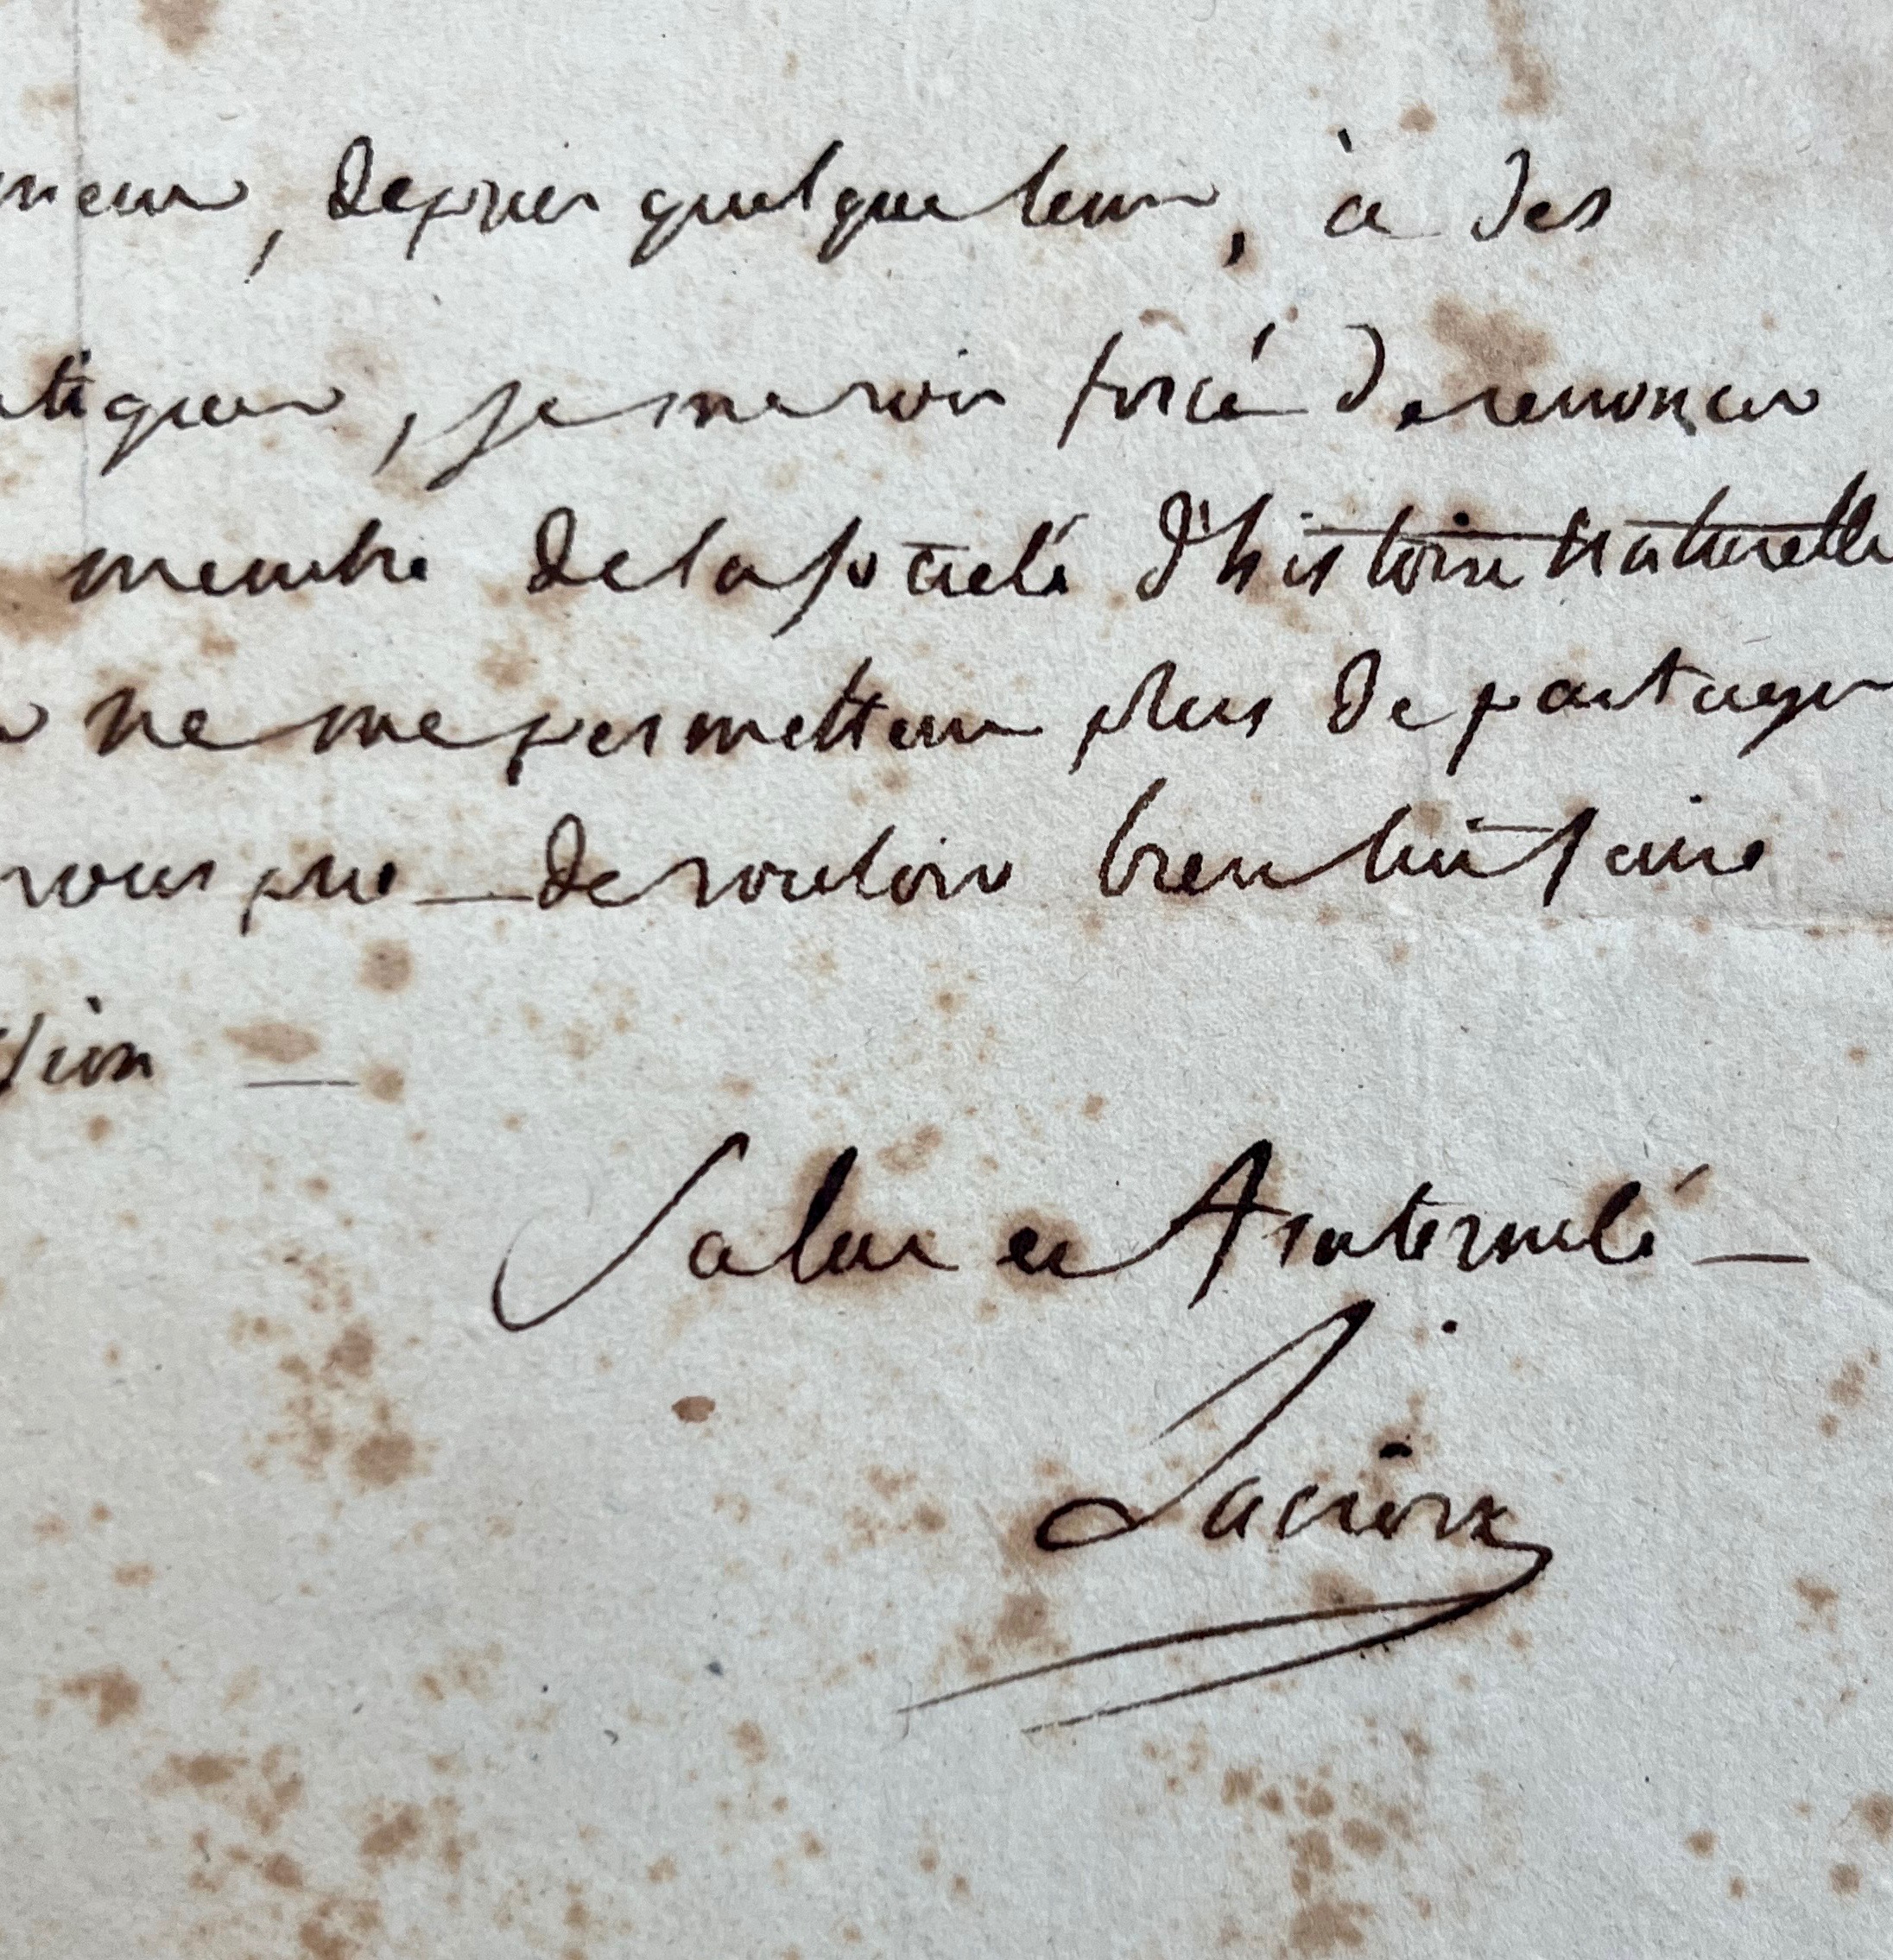 depuis quelque tems, à des
je me vois forcé de renoncer
membre de la société d'histoire naturelle
ne me permettent plus de partager
vous prie de vouloir bien lui faire
Salut et fraternité
Lacroix